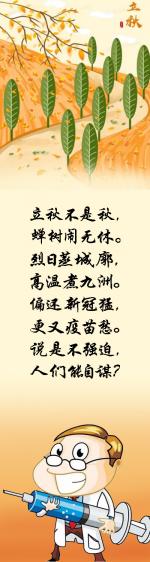 立秋
立秋不是秋，
蝉树闹无休。
烈日蒸城廓，
高温煮九洲。
偏还新冠猛，
更又疫苗愁。
说是不强迫，
人们能自谋？